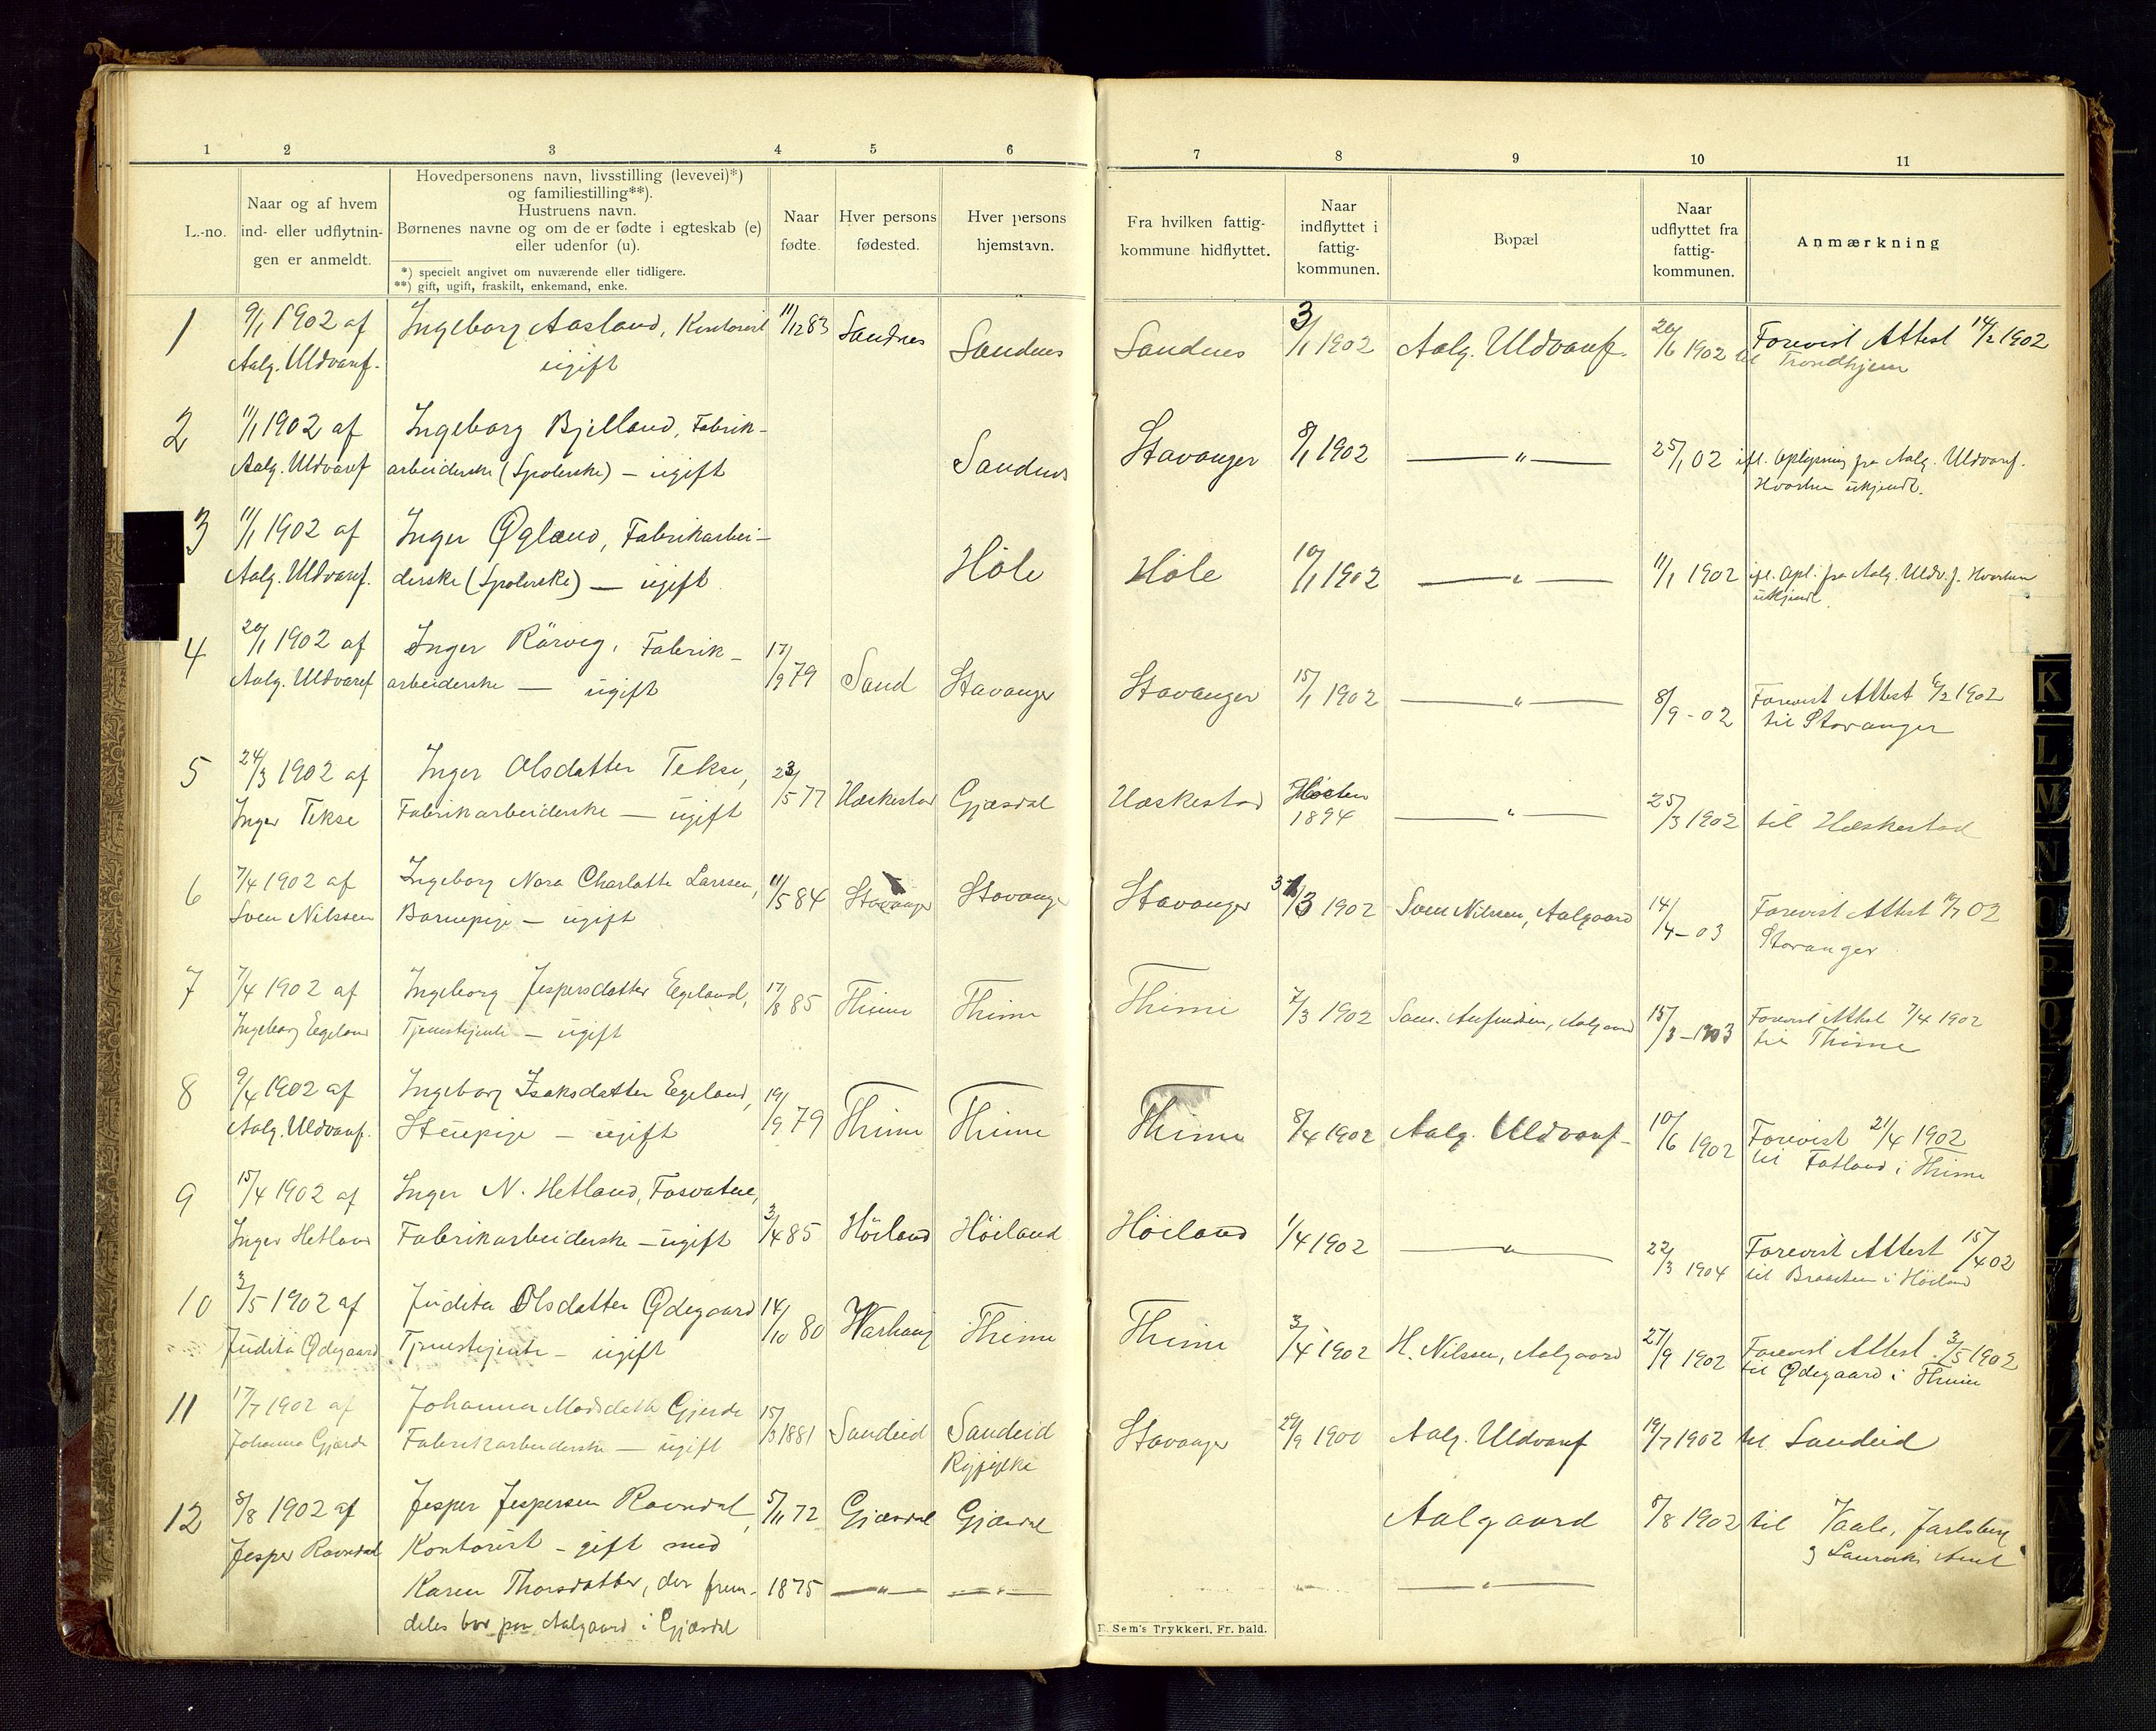 1 2 3 4 5 6 7 8 9 10 11
L.-no.
Naar og af hvem
ind- eller udflytnin-
gen er anmeldt.
Hovedpersonens navn, livsstilling (levevei)*)
og familiestilling**).
Hustruens navn.
Børnenes navne og om de er fødte i egteskab (e)
eller udenfor (u).
*) specielt angivet om nuværende eller tidligere.
**) gift, ugift, fraskilt, enkemand, enke.
Naar
fødte.
Hver persons
fødested.
Hver persons
hjemstavn.
Fra hvilken fattig-
kommune hidflyttet.
Naar
indflyttet i
fattig-
kommunen.
Bopæl
Naar
udflyttet fra
fattig-
kommunen.
Anmærkning
1 9/1 1902 af Ingeborg Aasland, Kontorist 11/12 83 Sandnes Sandnes Sandnes 3/1 1902 Aalg. Uldvaref. 20/6 1902 til Forevist Attest 14/2 1902
Aalg. Uldvaref. ugift Trondhjem
2 11/1 1902 af Ingeborg Bjelland, Fabrik- Sandnes Stavanger 8/1 1902 — " — 25/1 02 ifl. Oplysning fra Aalg. Uldvaref.
Aalg. Uldvaref arbeiderske (Spolerske) — ugift Hvorhen ukjendt.
3 11/1 1902 af Inger Øgland, Fabrikarbei- Höle Höle 10/1 1902 — " — 11/1 1902 ifl. Opl. fra Aalg. Uldv.f. Hvorhen
Aalg. Uldvaref. derske (Spolerske) — ugift ukjendt.
4 20/1 1902 af Inger Rärveg, Fabrik- 17/9 79 Sand Stavanger Stavanger 15/1 1902 — " — 8/9 - 02 Forevist Attest 6/2 1902
Aalg. Uldvaref arbeiderske — ugift til Stavanger
5 24/3 1902 af Inger Olsdatter Tekse, 23/5 77 Hæskestad Gjæsdal Hæskestad Høsten 1894 — " — 25/3 1902 til Hæskestad
Inger Tekse Fabrikarbeiderske — ugift
6 7/4 1902 af Ingeborg Nora Charlotte Larsen, 11/5 84 Stavanger Stavanger Stavanger 31/3 1902 Sven Nilssen, Aalgaard 14/4 - 03 Forevist Attest 02
Sven Nilssen Barnepige — ugift Stavanger
7 7/4 1902 af Ingeborg Jespersdatter Egeland, 17/8 85 Thime Thime Thime 7/3 1902 Aalgaard 15/3 - 1903 Forevist Attest 7/4 1902
Ingeborg Egeland Tjenestejente — ugift til Thime
8 9/4 1902 af Ingeborg Isaksdatter Egeland, 19/9 79 Thime Thime Thime 8/4 1902 Aalg. Uldvaref. 10/6 1902 Forevist 21/4 1902
Aalg. Uldvaref. Stuepige — ugift til Fatland i Thime
9 15/4 1902 af Inger N. Hetland, Fosvatne, 3/4 85 Höiland Höiland Höiland 1/4 1902 — " — 22/3 1904 Forevist Attest 15/4 02
Inger Hetland Fabrikarbeiderske — ugift til Braasten i Höiland
10 3/5 1902 af Judita Olsdatter Ødegaard 14/10 80 Warhaug Thime Thime 3/4 1902 H. Nilssen, Aalgaard 27/9 1902 Forevist Attest 3/5 1902
Judita Ødegaard Tjenestejente — ugift til Ødegaard i Thime
11 17/7 1902 af Johanna Madsdatter Gjerde 15/3 1881 Sandeid Sandeid Stavanger 29/9 1900 Aalg. Uldvaref 19/7 1902 til Sandeid
Johanna Gjerde Fabrikarbeiderske — ugift Ryfylke
12 8/8 1902 af Jesper Jespersen Ravndal, 5/11 72 Gjæsdal Gjæsdal Aalgaard 8/8 1902 til Vaale, Jarlsberg
Jesper Ravndal Kontorist - gift med og Laurviks Amt
Karen Thorsdatter, der frem- 1875 — " — — " — " — " —
deles bor paa Aalgaard i Gjæsdal
E. Sem's Trykkeri, Fr. hald.
K
L
M
N
O
P
Q